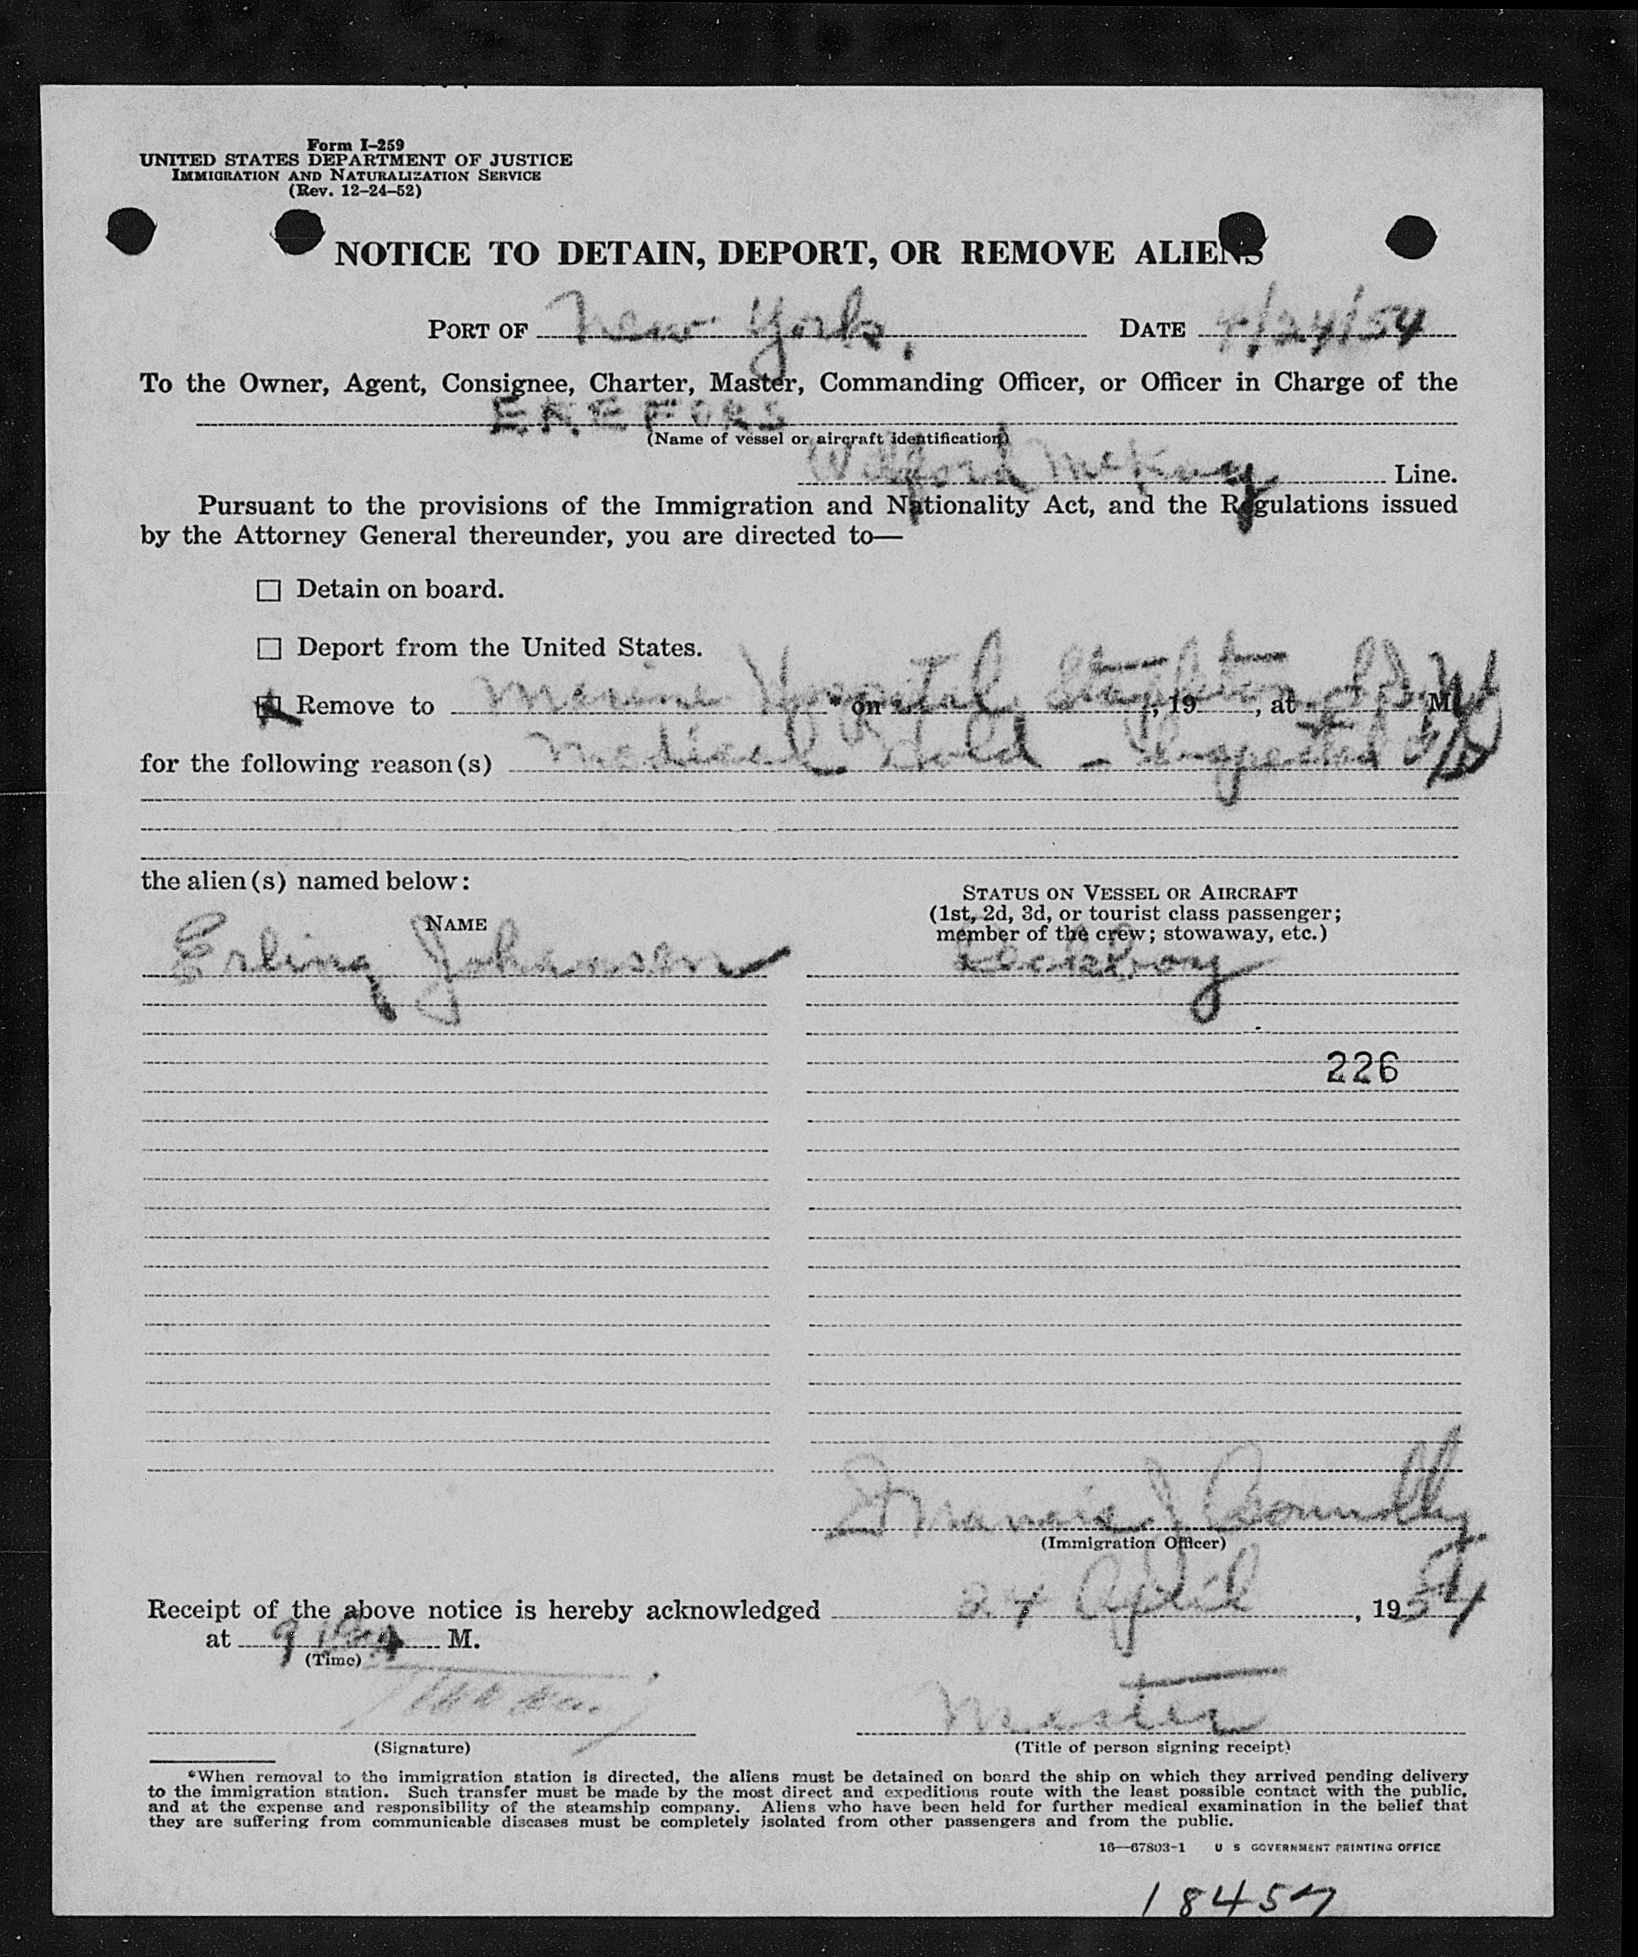 Form I-259
UNITED STATES DEPARTMENT OF JUSTICE
IMMIGRATION AND NATURALIZATION SERVICE
(Rev. 12-24-52)
NOTICE TO DETAIN, DEPORT, OR REMOVE ALIENS
PORT OF New York, DATE 4/24/54
To the Owner, Agent, Consignee, Charter, Master, Commanding Officer, or Officer in Charge of the
EKEFORS
(Name of vessel or aircraft identification)
Wilford McKay Line.
Pursuant to the provisions of the Immigration and Nationality Act, and the Regulations issued
by the Attorney General thereunder, you are directed to—
☐ Detain on board.
☐ Deport from the United States.
☒ Remove to Marine Hospital Stapleton S.I. N.Y. * on , 19 , at M
for the following reason(s) Medical Hold - Suspected V/D
the alien(s) named below:
NAME
STATUS ON VESSEL OR AIRCRAFT
(1st, 2d, 3d, or tourist class passenger;
member of the crew; stowaway, etc.)
Erling Johansen deckboy
226
Francis J Connolly
(Immigration Officer)
Receipt of the above notice is hereby acknowledged 24 April, 1954
at 9 M.
(Time)
Master
(Signature) (Title of person signing receipt)
*When removal to the immigration station is directed, the aliens must be detained on board the ship on which they arrived pending delivery
to the immigration station. Such transfer must be made by the most direct and expeditious route with the least possible contact with the public,
and at the expense and responsibility of the steamship company. Aliens who have been held for further medical examination in the belief that
they are suffering from communicable diseases must be completely isolated from other passengers and from the public.
16—67803-1 U S GOVERNMENT PRINTING OFFICE
18457